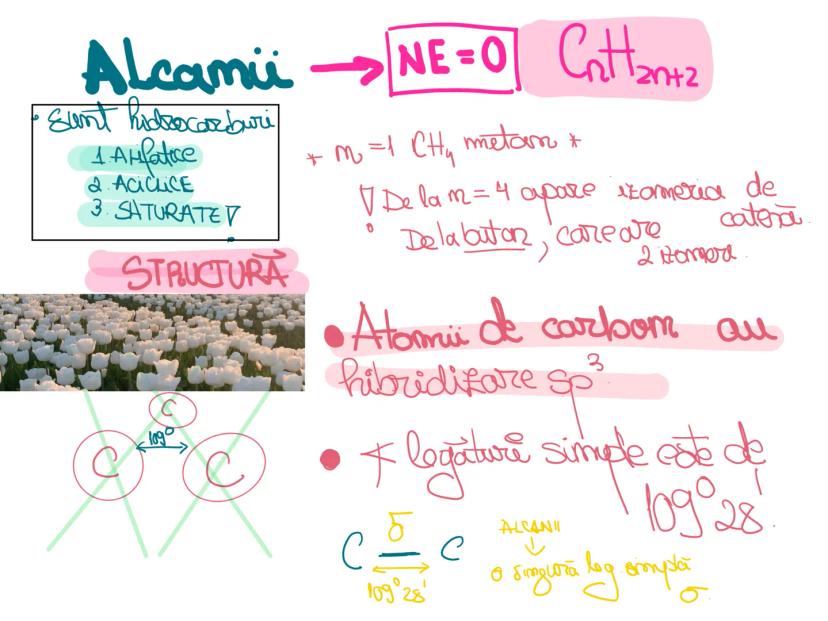 Alcanii → NE=0 CnH2n+2
• Sunt hidrocarburi
1. Alifatice
2. ACICLICE
3. SATURATE
* n=1 CH4 metan *
De la n=4 apare izomeria de catenă
De la butan, care are 2 izomeri.
STRUCTURĂ
• Atomii de carbon au
hibridizare sp3
C
109°
C C
• ∢ legăturii simple este de
109°28'
σ
C — C
109°28'
ALCANII
↓
o singură leg simplă
σ